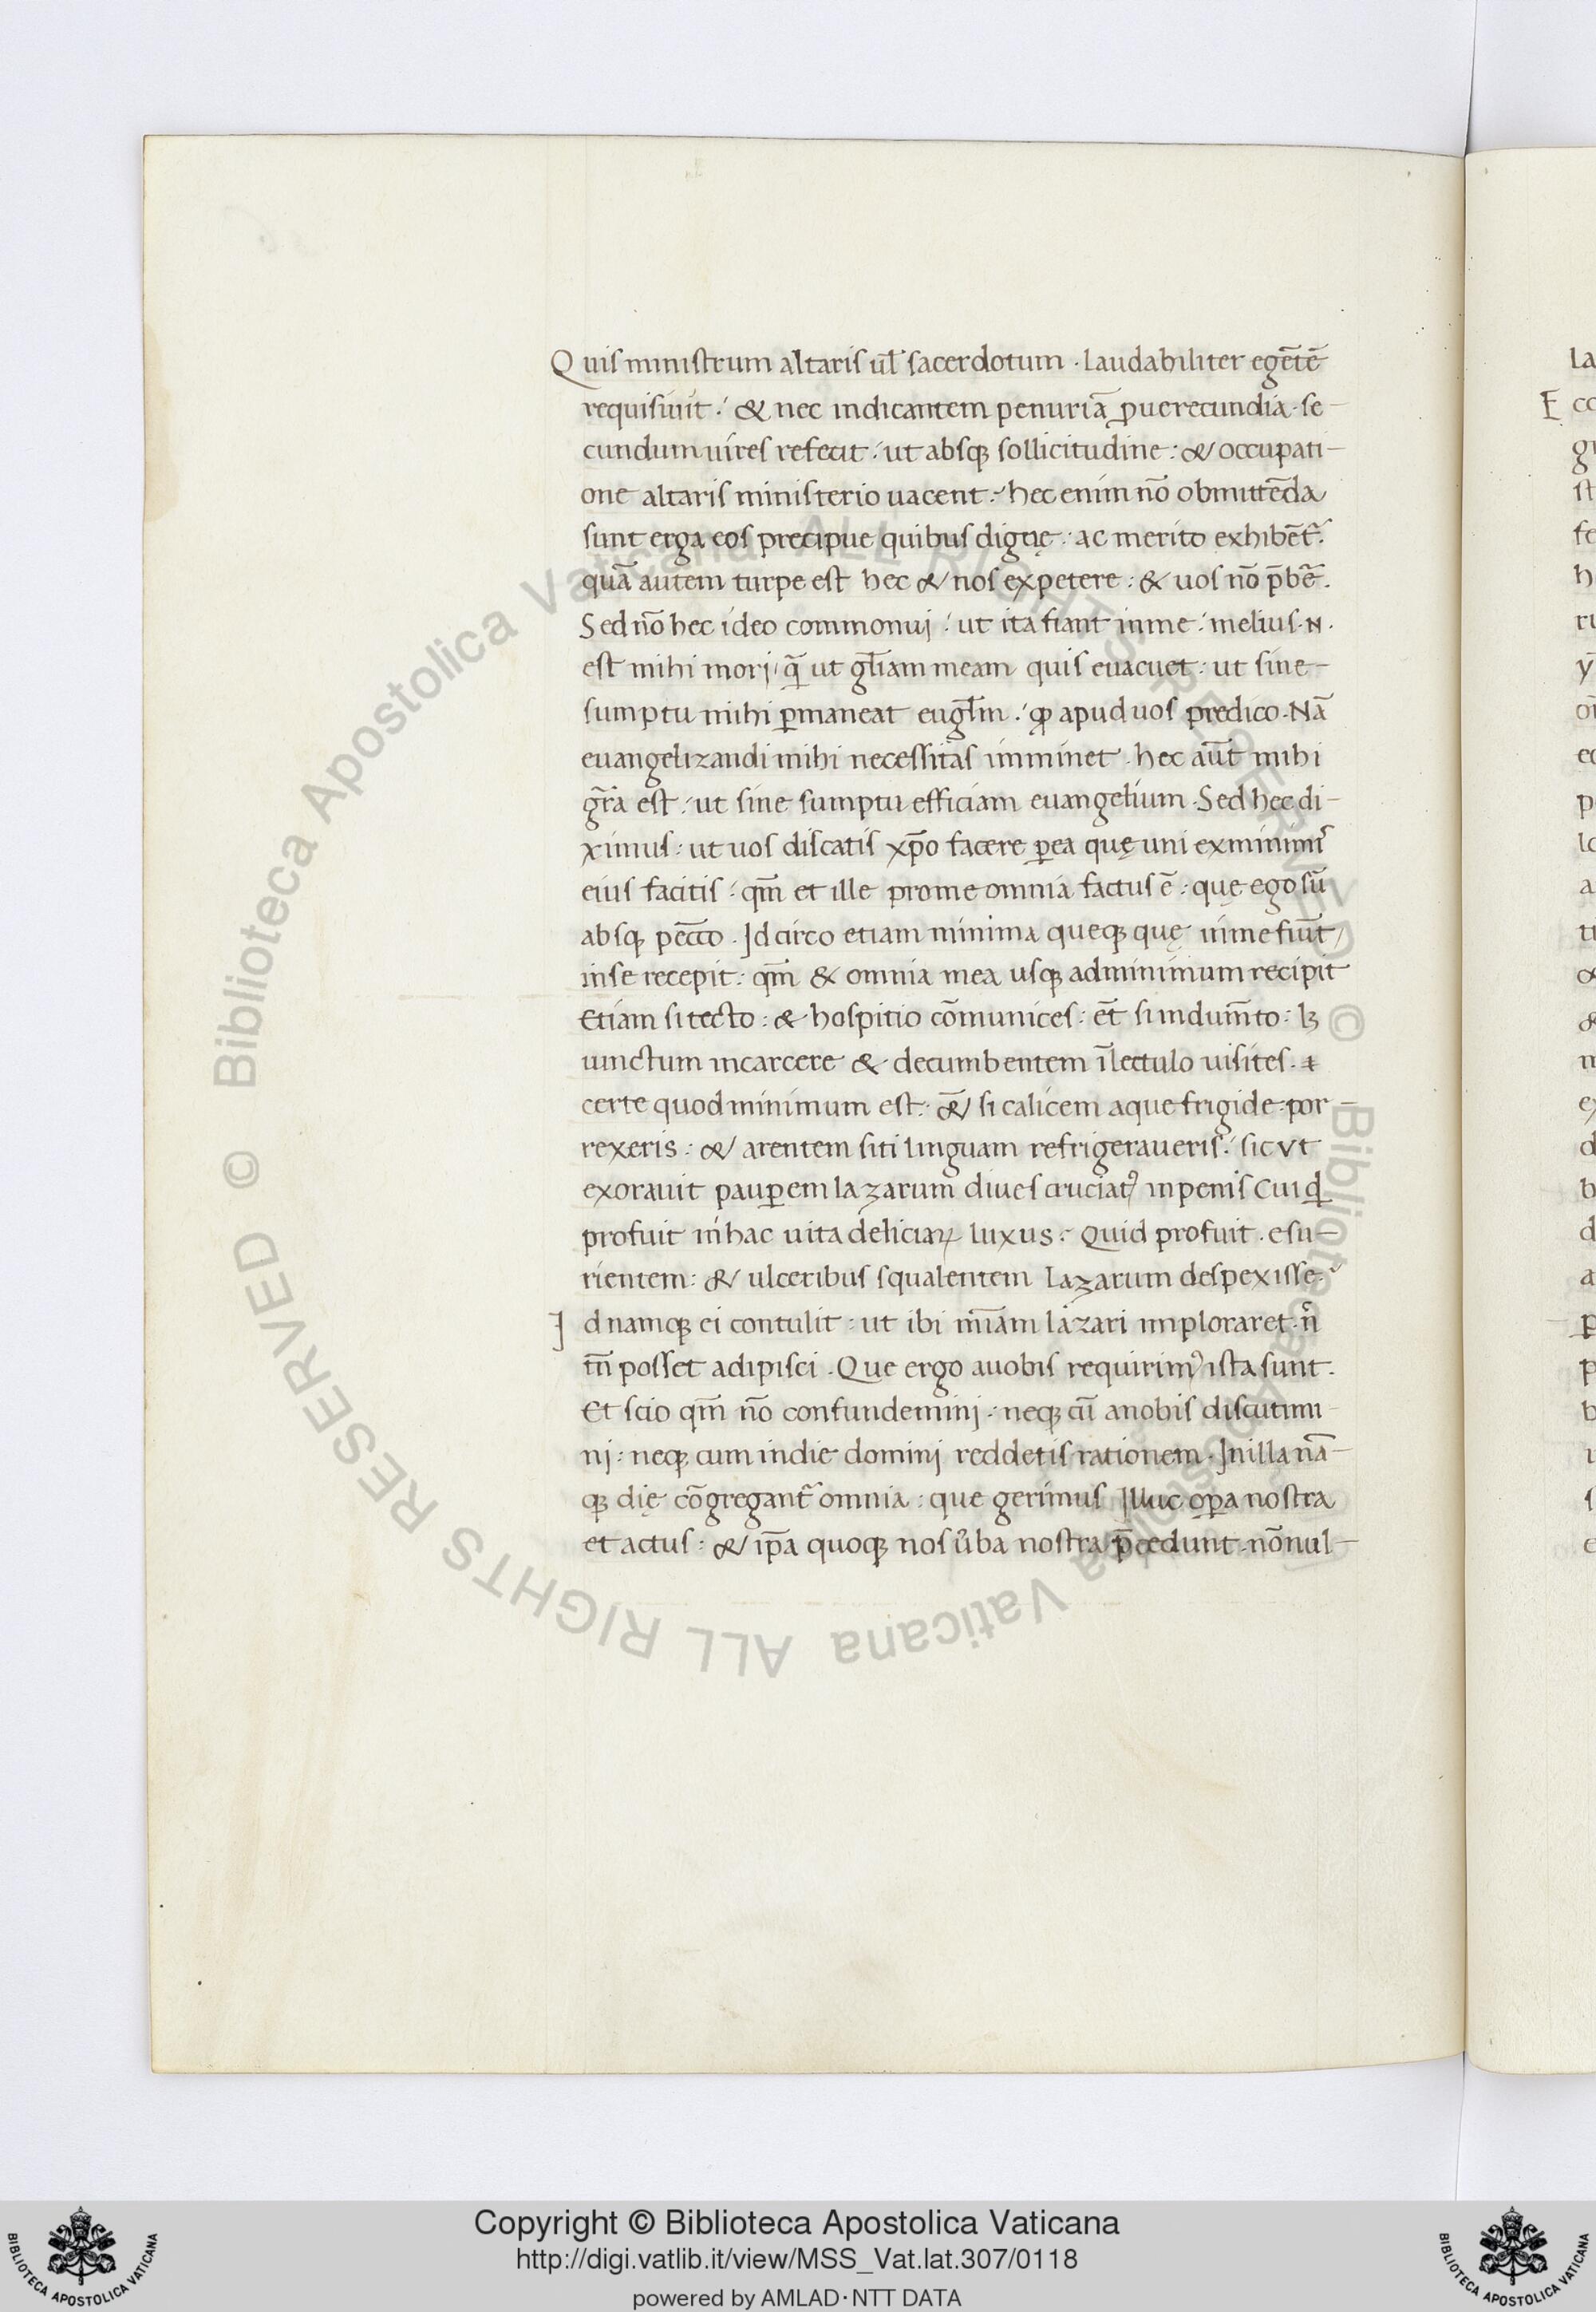 Quis ministrum altaris ul̄ sacerdotum · laudabiliter egētē
requisiuit ·´ & nec indicantem penuriā ꝓ uerecundia · se-
cundum uires refecit ·´ ut absqꝫ sollicitudine : & occupati-
one altaris ministerio uacent ·´ hec enim nō obmittēda
sunt erga eos precipue quibus digne : ac merito exhibēt᷑
quā autem turpe est hec & nos expetere : & uos nō p̄bē᷑.
Sed nō hec ideo commonuj ·´ ut ita fiant inme ·´ melius · N ·
est mihi morj ·´ qꝫ̄ ut gl̄iam meam quis euacuet : ut sine-
sumptu mihi ꝑmaneat eugl̄m ·´ qꝫ apud uos predico · Nā
euangelizandi mihi necessitas imminet · hec aūt mihi
gr̄a est ·´ ut sine sumptu efficiam euangelium · Sed hec di-
ximus : ut uos discatis xp̄o facere ꝑea quę uni exminimis
eius facitis ·´ qm̄ et ille prome omnia factus ē : quę ego sū
absqꝫ pecc̄o · Idcirco etiam minima queqꝫ quę inme fiūt
inse recepit : qm̄ & omnia mea usqꝫ adminimum recipit
Etiam si tecto : & hospitio cōmunices : et̄ si indum̄to : lꝫ
uinctum incarcere & decumbentem ī lectulo uisites · ⁊
certe quod minimum est : &̄ si calicem aque frigide por-
rexeris : & arentem siti linguam refrigeraueris ·´ sicut
exorauit pauꝑem lazarum diues cruciatꝰ inpenis Cui qd̄
profuit inhac uita deliciaꝝ luxus · Quid profuit · esu-
rientem : & ulceribus squalentem lazarum despexisse ·
Id namqꝫ ei contulit : ut ibi mīam lazari imploraret · n̄
tn̄ posset adipisci · Que ergo auobis requirimꝰ ista sunt ·
Et scio qm̄ nō confundeminj · neqꝫ cū anobis discutimi
nj : neqꝫ cum indie dominj reddetis rationem · Inilla nā-
qꝫ dię cōgregant᷑ omnia : que gerimus Illuc oꝑa nostra
et actus : & ip̄a quoqꝫ nos ůba nostra p̄cedunt · nōnul-
Copyright © Biblioteca Apostolica Vaticana
http://digi.vatlib.it/view/MSS_Vat.lat.307/0118
powered by AMLAD·NTT DATA